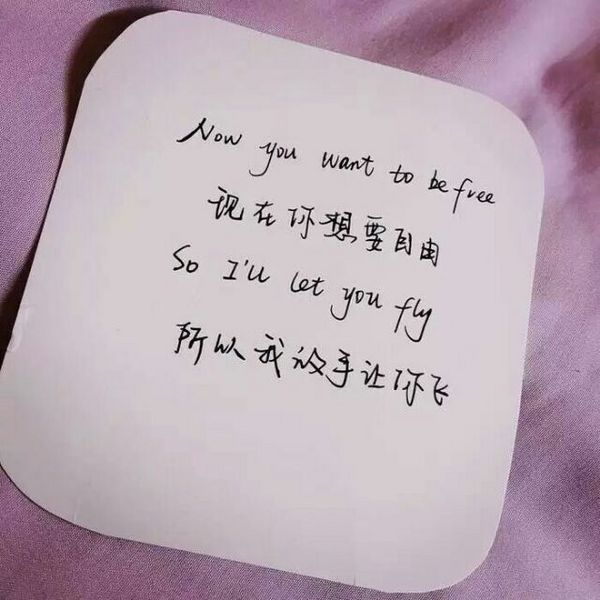 Now you want to be free
现在你想要自由
So I'll let you fly
所以我放手让你飞